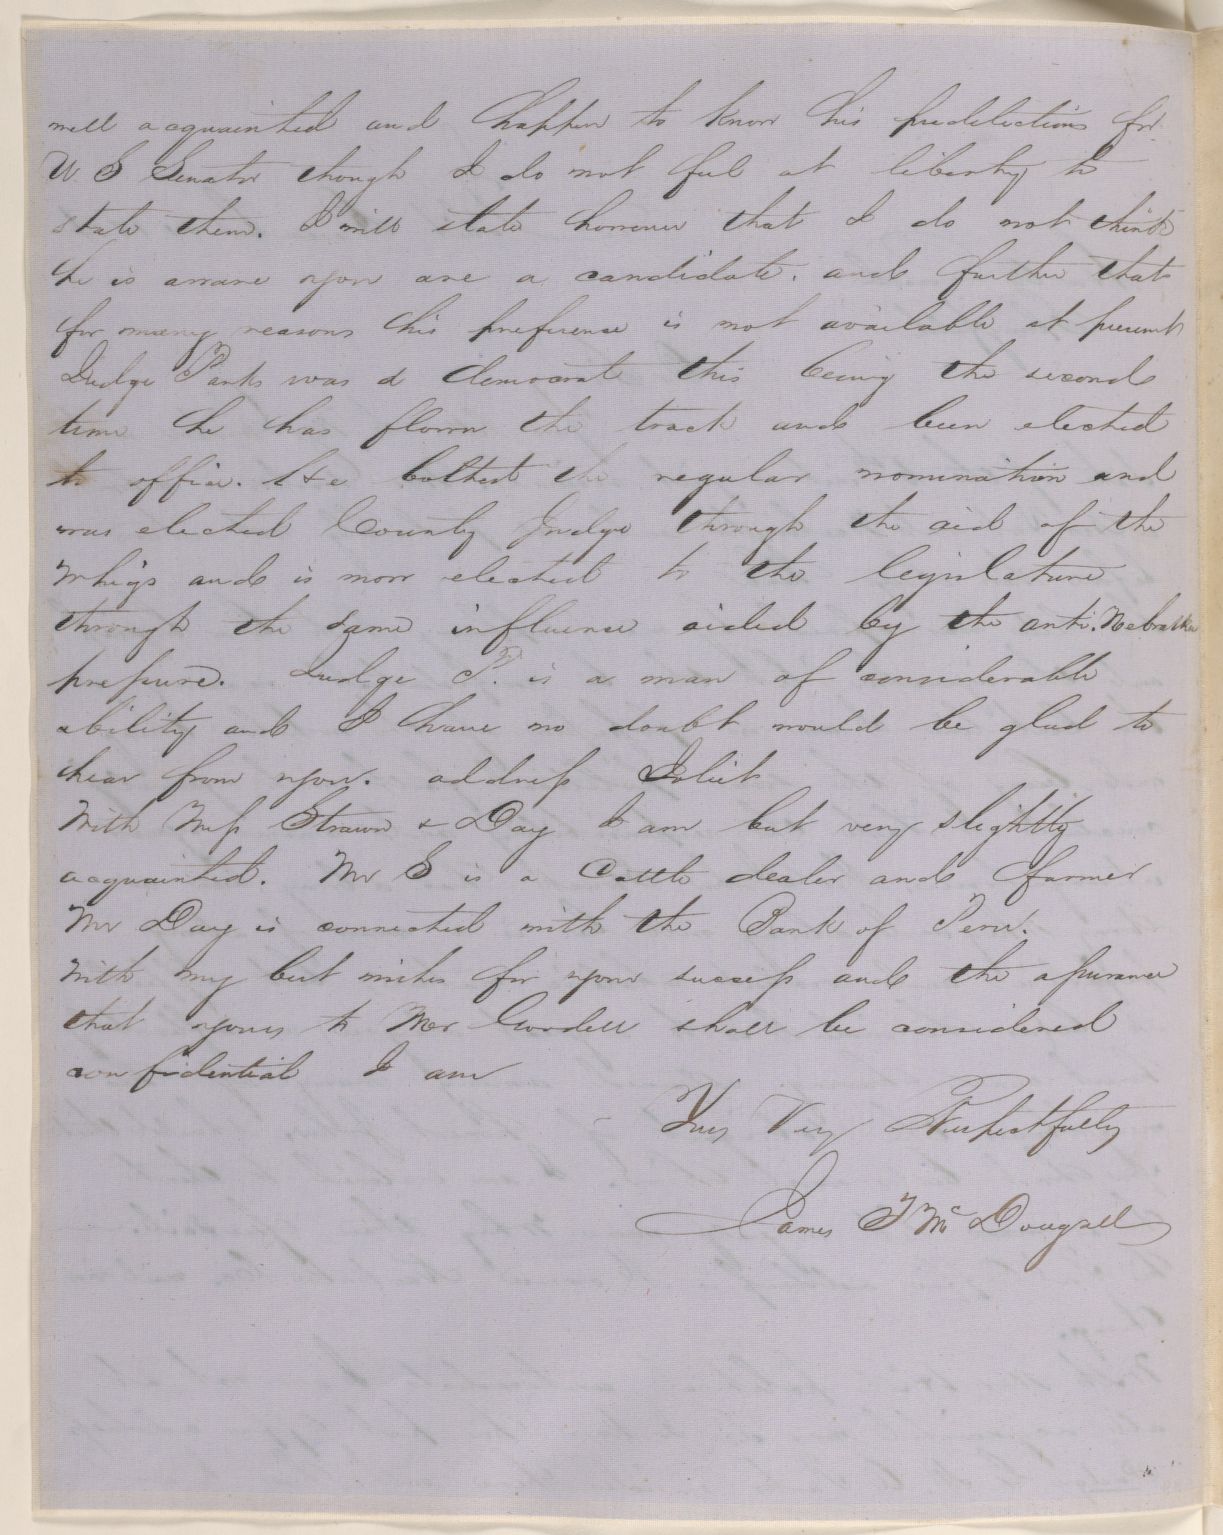 well acquainted and happen to know his predilections for
U. S Senator though I do not feel at liberty to
state them. I will state however that I do not think
he is aware you are a candidate. and further that
for many reasons his preference is not available at present
Judge Parks was a democrat this being the second
time he has flown the track and been elected
to office. He bolted the regular nomination and
was elected County Judge through the aid of the
Whigs and is now elected to the legislature
through the same influence aided by the anti. Nebraska
pressure. Judge P. is a man of considerable
ability and I have no doubt would be glad to
hear from you. address Joliet
With Mess Strawn & Day I am but very slightly
acquainted. Mr S is a Cattle dealer and farmer
Mr Day is connected with the Bank of Peru.
With my best wishes for your success and the assurance
that yours to Mr Goodell shall be considered
confidential I am
Yours Very Respectfully
James T McDougall